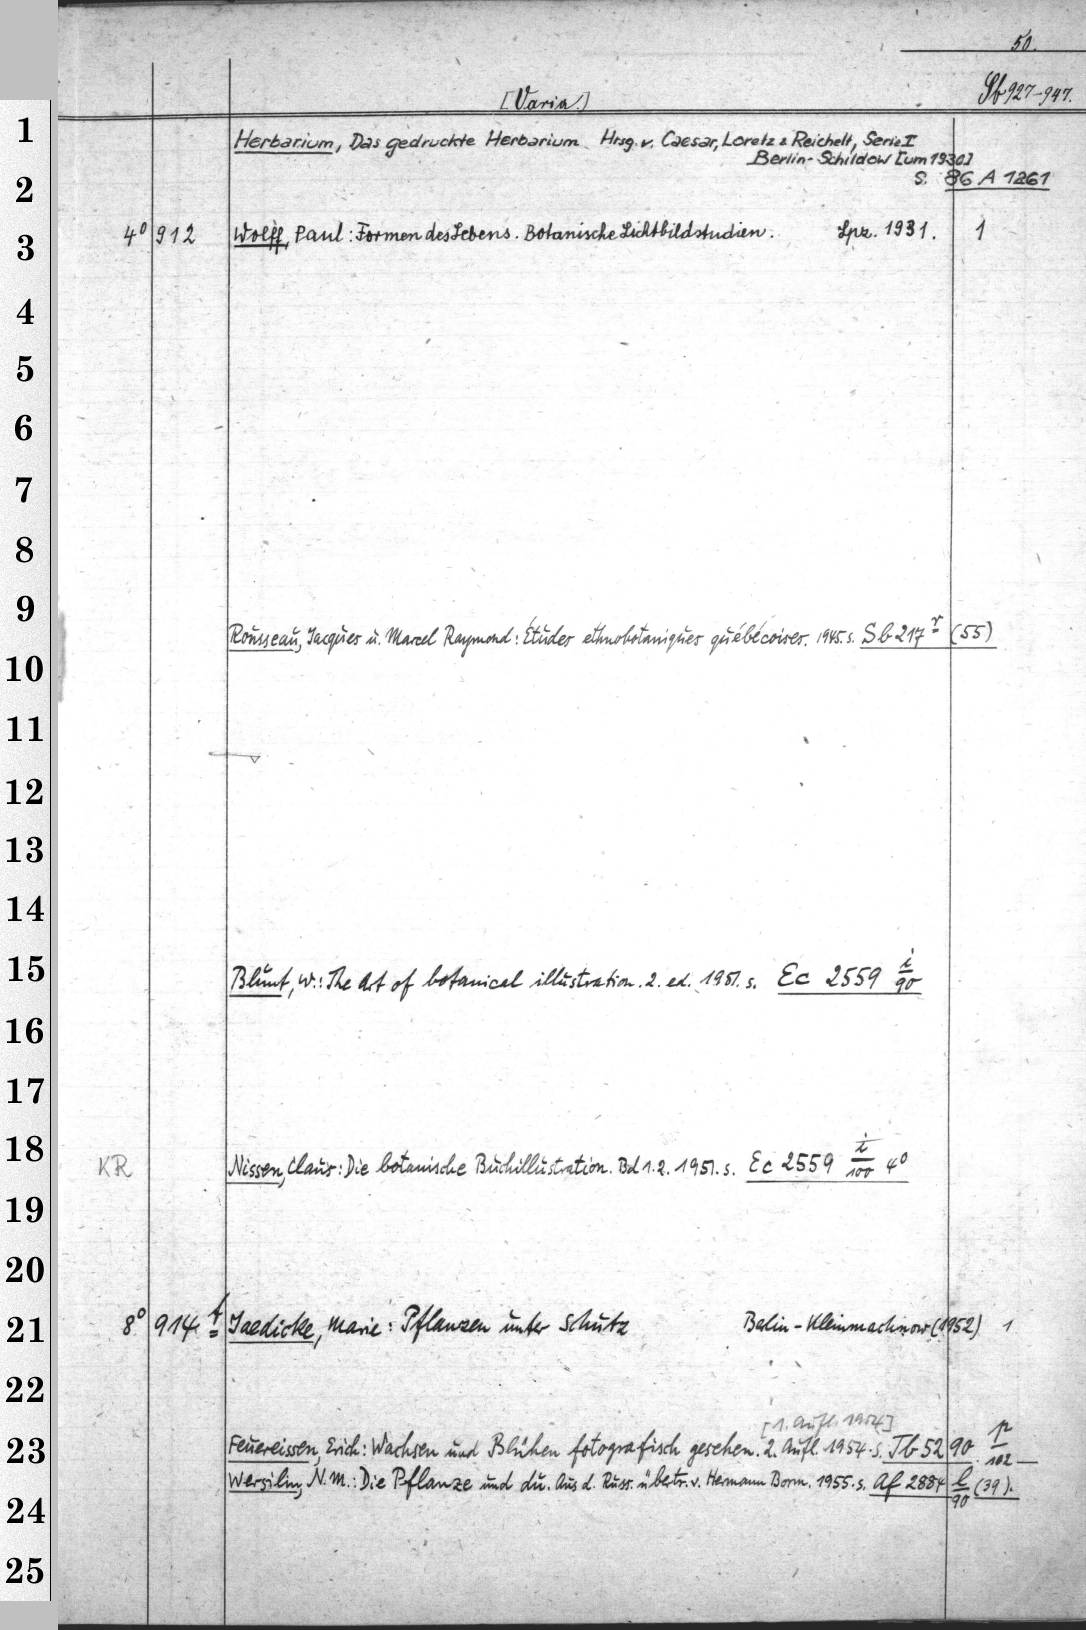 50.
Sb 927-947.
[Varia.]
1
Herbarium, Das gedruckte Herbarium. Hrsg. v. Caesar, Loretz & Reichelt, Serie I
Berlin-Schildow [um 1930]
2
s. 86 A 1261
4° 912 Wolff, Paul: Formen des Lebens. Botanische Lichtbildstudien. Lpz. 1931. 1
3
4
5
6
7
8
9
Rousseau, Jacques u. Marcel Raymond: Études ethnobotaniques québécoises. 1945. s. Sb 217 r (55)
10
11
12
13
14
15
Blunt, W.: The Art of botanical illustration. 2. ed. 1951. s. Ec 2559 i/90
16
17
18
KR Nissen, Claus: Die botanische Buchillustration. Bd 1.2. 1951. s. Ec 2559 i/100 4°
19
20
21
8° 914 t Jaedicke, Marie: Pflanzen unter Schutz Berlin-Kleinmachnow (1952) 1
22
[1. Aufl. 1954]
23
Feuereissen, Erich: Wachsen und Blühen fotografisch gesehen. 2. Aufl. 1954. s. Jb 5290 p/102
Wersilin, N. M.: Die Pflanze und du. Aus d. Russ. übertr. v. Hermann Borm. 1955. s. Af 2884 l/90 (39).
24
25